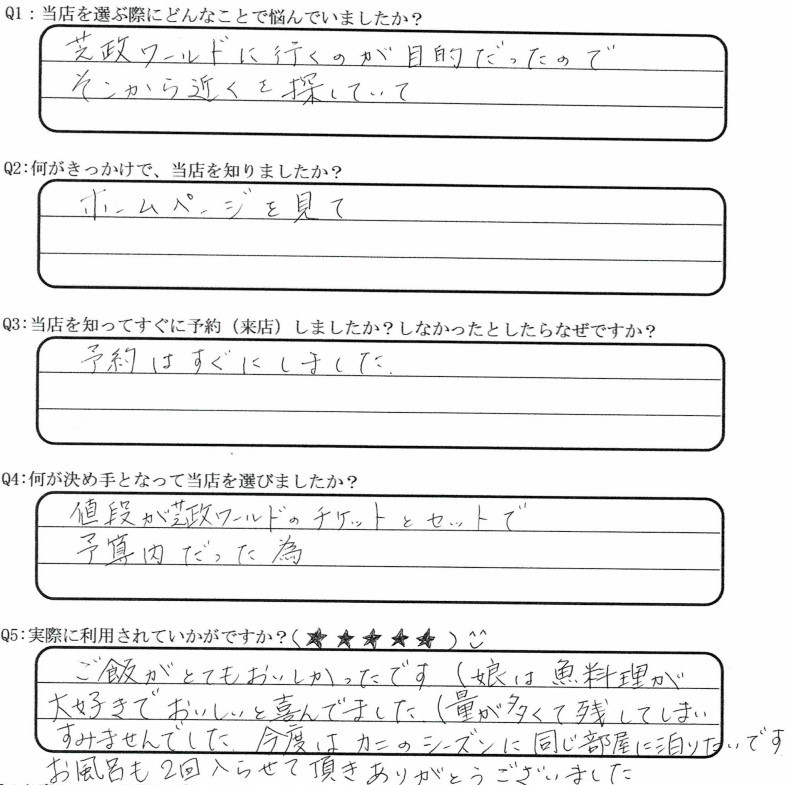 Q1：当店を選ぶ際にどんなことで悩んでいましたか？
芝政ワールドに行くのが目的だったので
そこから近くを探していて
Q2:何がきっかけで、当店を知りましたか？
ホームページを見て
Q3:当店を知ってすぐに予約（来店）しましたか？しなかったとしたらなぜですか？
予約はすぐにしました.
Q4:何が決め手となって当店を選びましたか？
値段が芝政ワールドのチケットとセットで
予算内だった為
Q5:実際に利用されていかがですか？(★★★★★)
ご飯がとてもおいしかったです (娘は魚料理が
大好きでおいしいと喜んでました (量が多くて残してしまい
すみませんでした 今度はカニのシーズンに同じ部屋に泊りたいです
お風呂も2回入らせて頂きありがとうございました